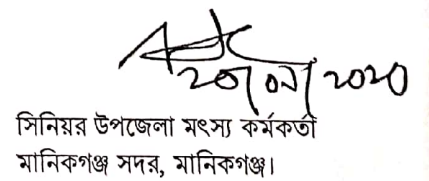 ২০/০৯/২০২০
সিনিয়র উপজেলা মৎস্য কর্মকর্তা
মানিকগঞ্জ সদর, মানিকগঞ্জ।